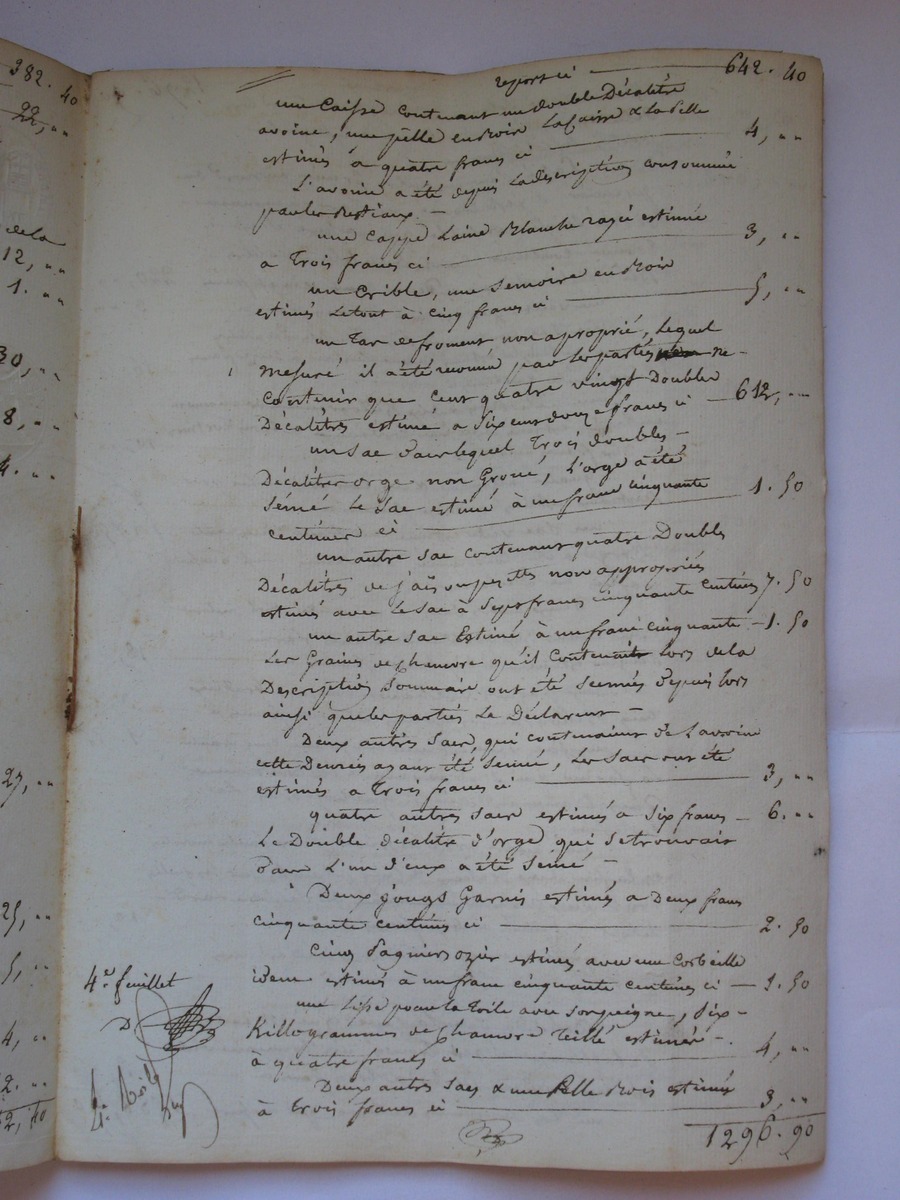 382. 40
22, ""
de la
12, ""
1. ""
30, ""
8, ""
4. ""
27, ""
25, ""
5, ""
4, ""
2. ""
52, 40
report ci 642. 40
une Caisse contenant un double Décalitre
avoine, une pelle en Bois La Caisse & La Pelle
estimés à quatre francs ci 4, ""
L'avoine a été depuis La description consommée
par les Bestiaux. –
une Cappe Laine Blanche razée estimée
a Trois francs ci 3, ""
un Crible, une Semoire en Bois
estimés Le tout à Cinq francs ci 5, ""
un Tas de froment non aproprié, Lequel
mesuré il a été reconnu par les parties ne
contenir que Cent quatre vingt Doubles
Décalitres estimé a Six cent douze francs ci – 612, ""
un Sac dans lequel Trois doubles –
Décalitres orge non Groué, L'orge a été
Semé Le Sac estimé à un franc cinquante
centimes ci 1. 50
un autre Sac contenant quatre Doubles
Décalitres de non appropriés
estimés avec Le Sac à Sept francs cinquante centimes 7. 50
un autre Sac Estimé à un franc cinquante – 1. 50
Les Graines de Chenvre qu'il contenait lors de la
Description Sommaire ont été Semées depuis lors
ainsi que les parties Le Déclarent –
Deux autres Sacs, qui contenaient de L'avoine
cette Denrée ayant été Semée, Les Sacs ont été
estimés a Trois francs ci 3, ""
quatre autres Sacs estimés a Six francs – 6. ""
Le Double décalitre d'orge qui Se trouvait
dans L'un d'eux a été Semé –
Deux Jougs Garnis estimés a Deux francs
cinquante centimes ci 2. 50
Cinq Pagniers ozier estimés avec une Corbeille
idem estimés à un franc cinquante centimes ci – 1. 50
une Lisse pour la Toile avec Son peigne, Six –
Killogrammes de Chanvre Teillé estimés –
à quatre francs ci 4, ""
Deux autres Sacs & une Pelle Bois estimés
à trois francs ci 3, ""
1296. 90
4e. feuillet
D